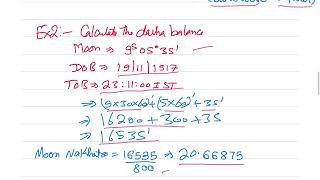 Ex2:- Calculate the dasha balance
Moon ⇒ 9ˢ 05° 35'
DOB ⇒ 19/11/1917
TOB ⇒ 23:11:00 IST
⇒ (9x30x60)' + (5x60)' + 35'
⇒ 16200 + 300 + 35
⇒ 16535'
Moon Nakhatra = 16535 ⇒ 20.66875
800